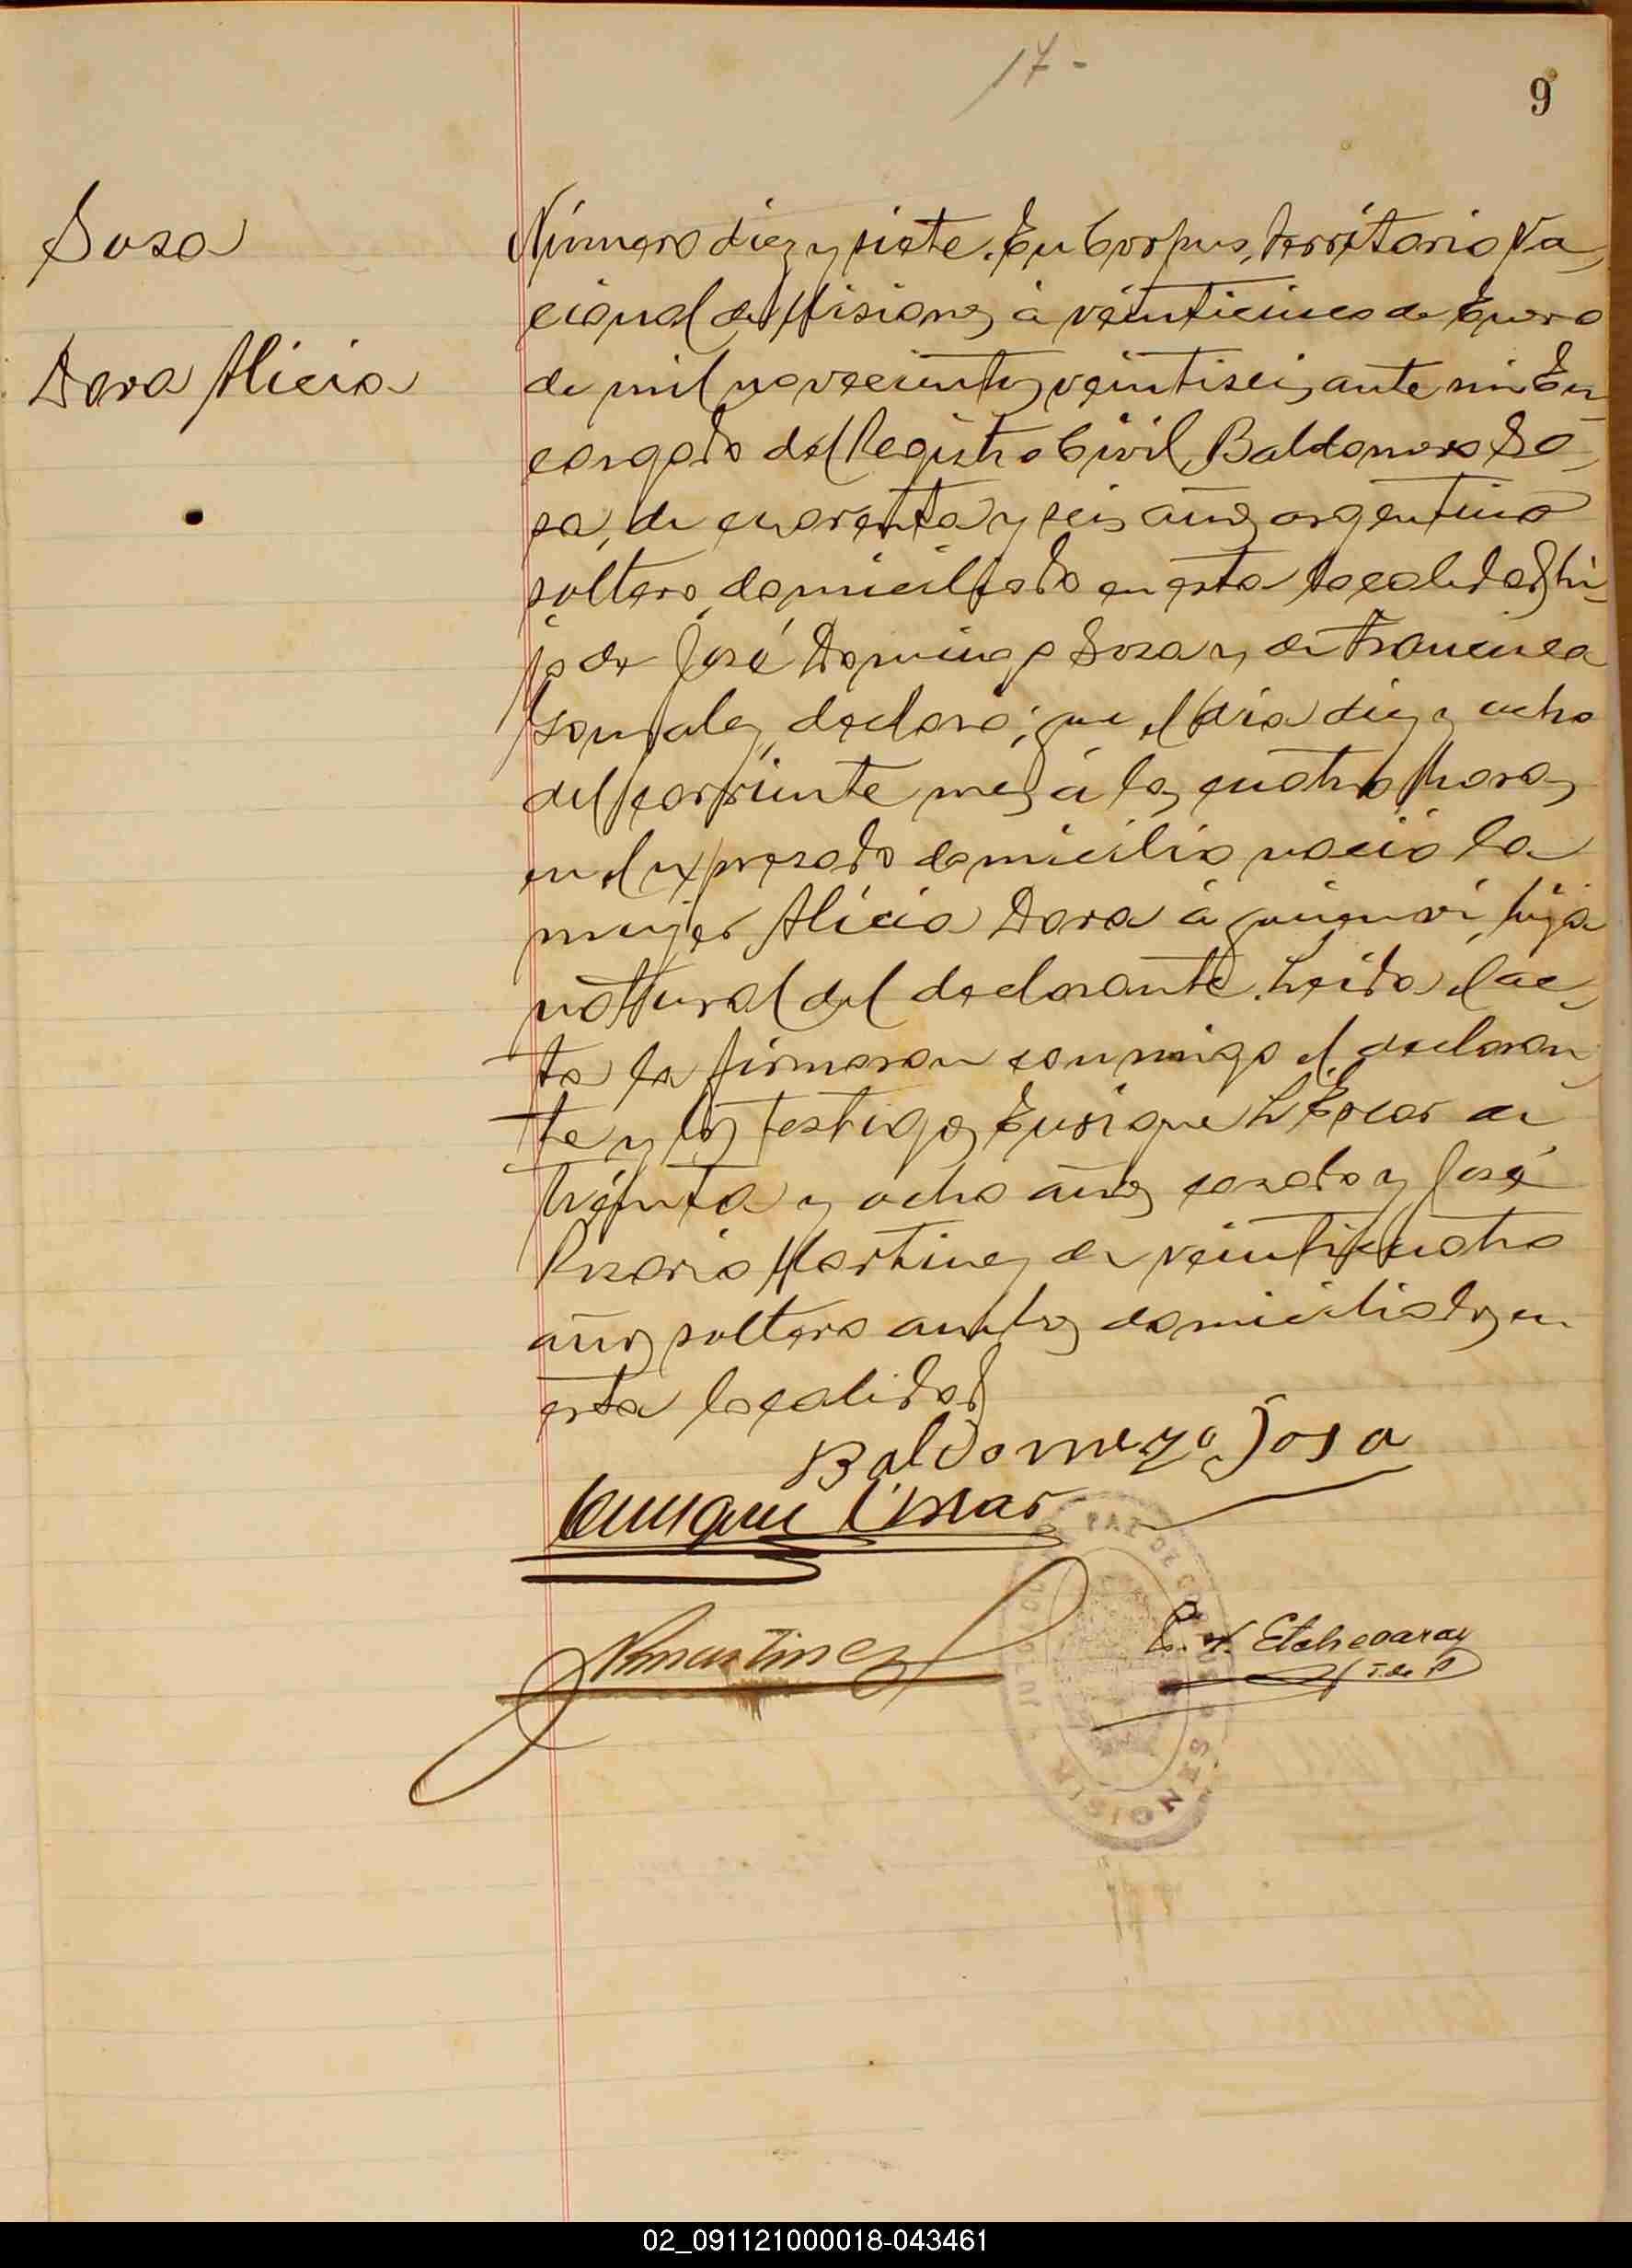 17-
9
Sosa
Dora Alicia
Número diez y siete. En Corpus, territorio Na-
cional de Misiones a veinticinco de Enero
de mil novecientos veintiseis, ante mi En-
cargado del Registro Civil, Baldomero So-
sa, de cuarenta y seis años argentino
soltero, domiciliado en esta localidad hi-
jo de José Domingo Sosa y de Francisca
Gonzalez, declaró; que el dia diez y ocho
del corriente mes á las cuatro horas
en el expresado domicilio nació la
mujer Alicia Dora á quien vi, hija
natural del declarante. Leida el ac-
ta la firmaron conmigo el declaran-
te y los testigos Enrique de
treinta y ocho años casado y José
Rosario Martinez de veinticuatro
años soltero ambos domiciliados en
esta localidad
Baldomero Sosa
Enrique
Martinez
Etchegaray
J. de P
MISIONES
02_091121000018-043461